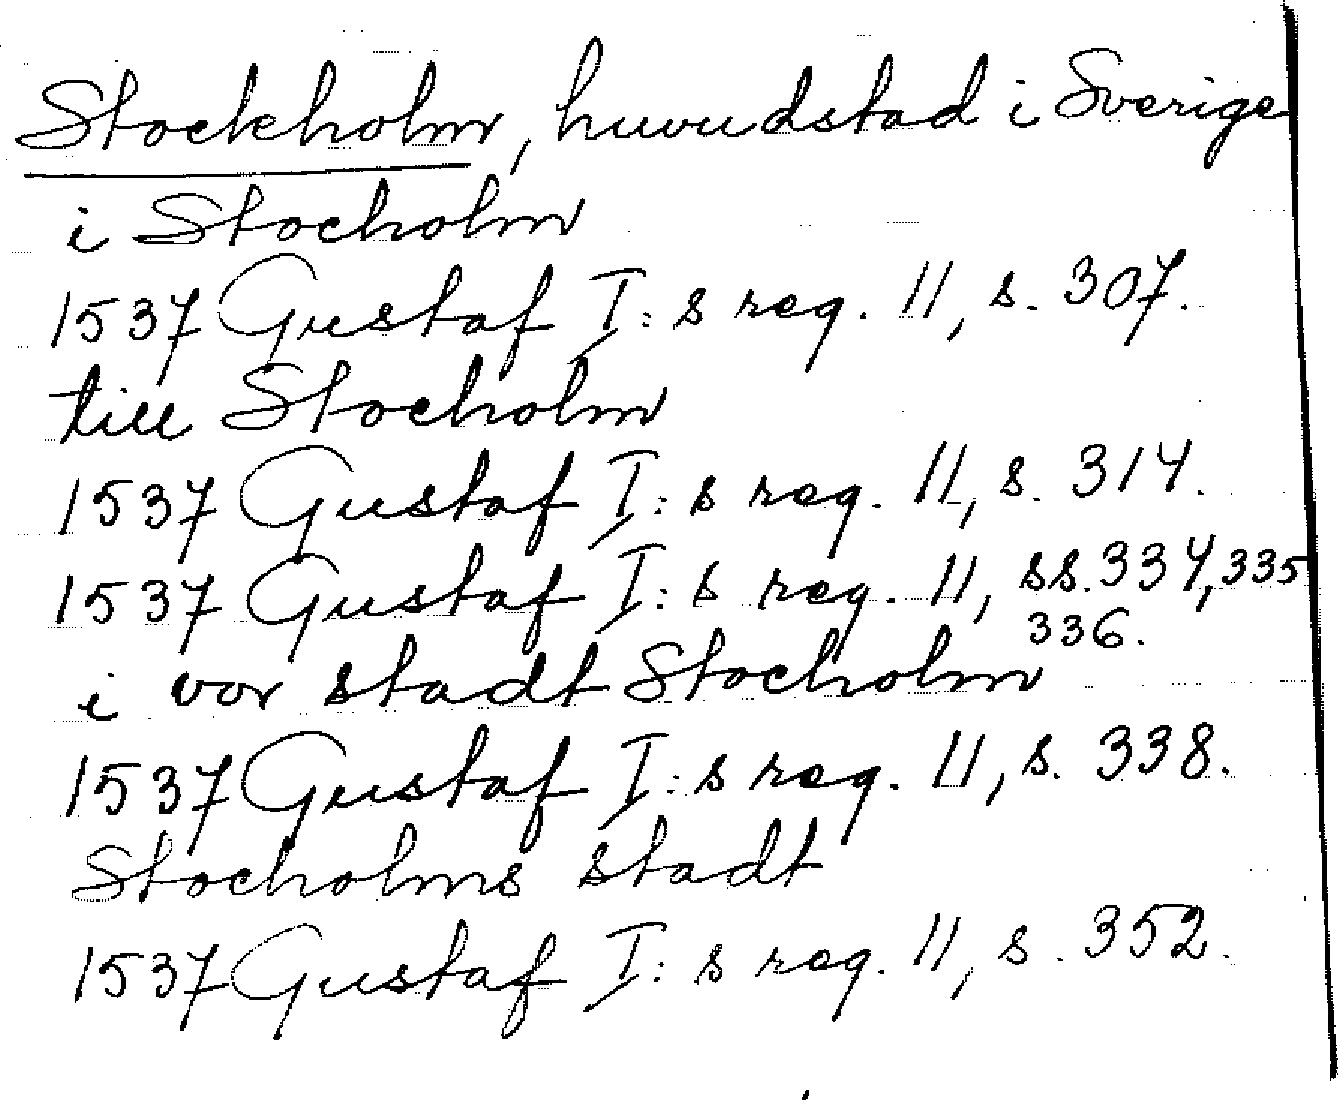 Stockholm, huvudstad i Sverige
i Stocholm
1537 Gustaf I:s reg. 11, s. 307.
till Stocholm
1537 Gustaf I:s reg. 11, s. 314.
1537 Gustaf I:s reg. 11, ss. 334, 335
336.
i vor stadt Stocholm
1537 Gustaf I:s reg. 11, s. 338.
Stocholms stadt
1537 Gustaf I:s reg. 11, s. 352.